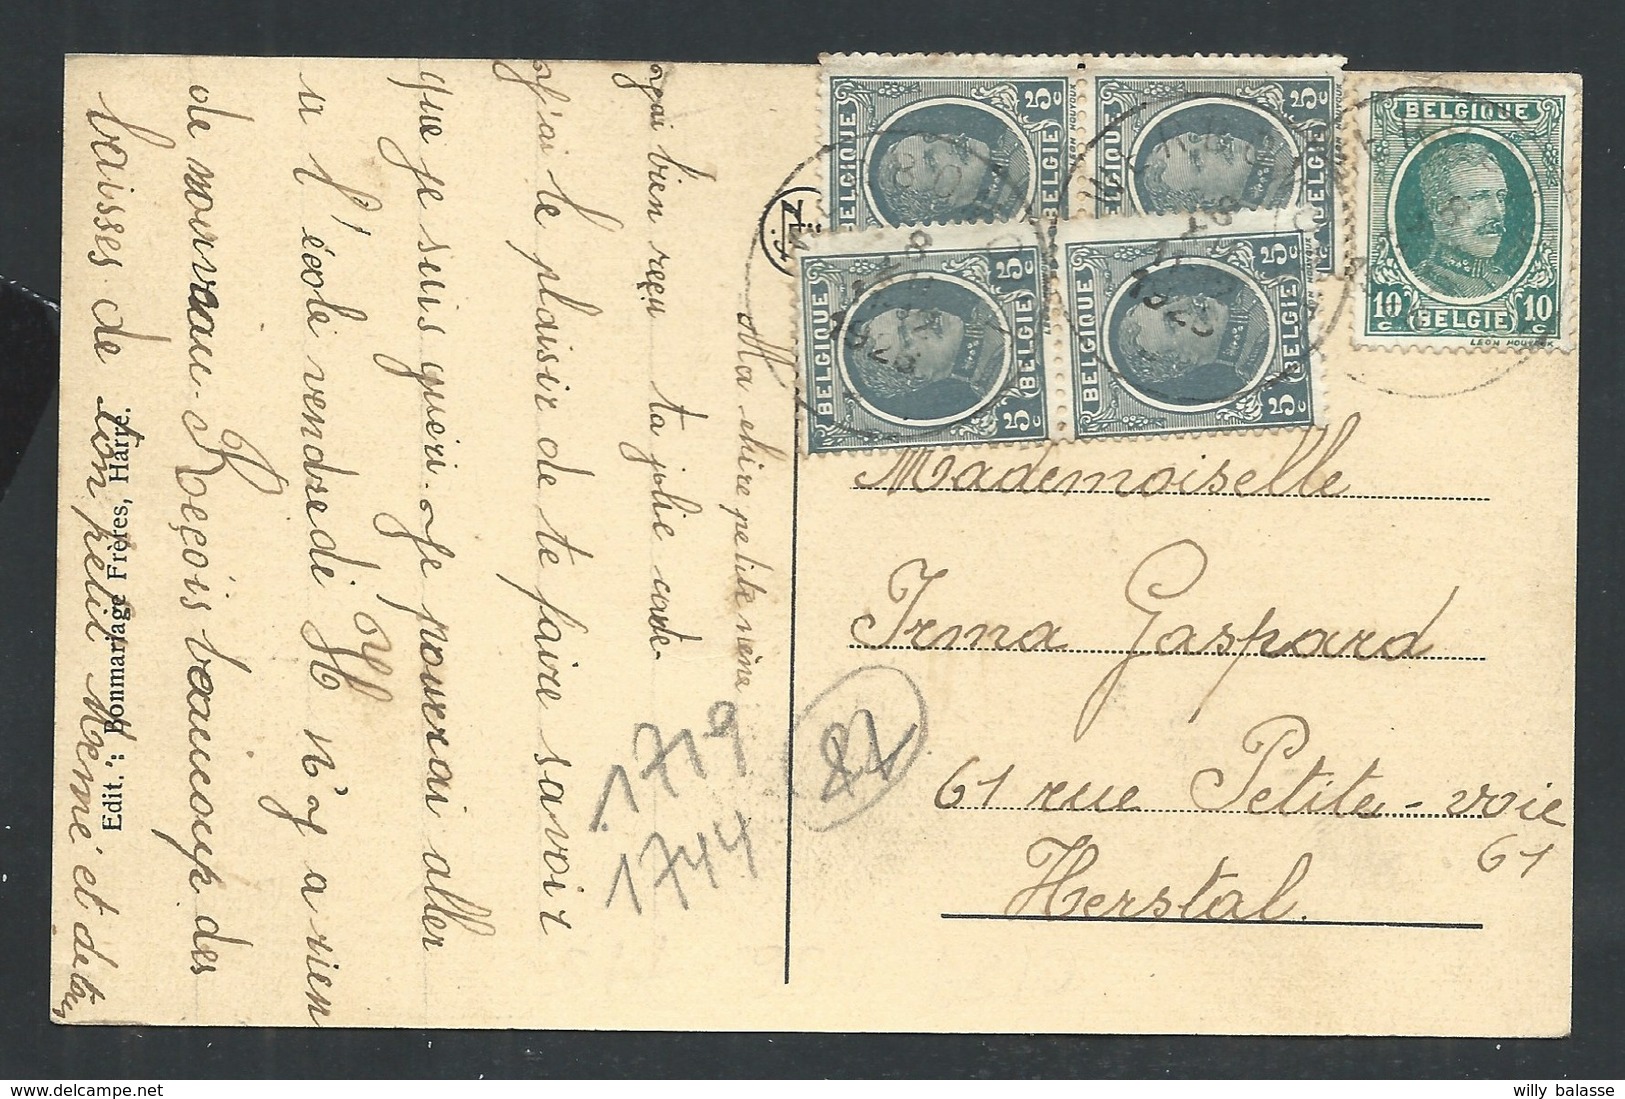 Ma chère petite nène
J'ai bien reçu ta jolie carte
J'ai le plaisir de te faire savoir
que je suis guéri. Je pourrai aller
à l'école vendredi. Il n'y a rien
de nouveau. Reçois beaucoup des
baisses de ton petit Mémé et de ton
Edit. : Bonmariage Frères, Harre.
1719
1744
87
BELGIQUE 5 C BELGIE 5 C
LEON HOUYOUX
BELGIQUE 5 C BELGIE 5 C
LEON HOUYOUX
BELGIQUE 5 C BELGIE 5 C
BELGIQUE 5 C BELGIE 5 C
BELGIQUE
10 C BELGIE 10 C
LEON HOUYOUX
8
1925
18
1925
Mademoiselle
Irma Gaspard
61 rue Petite-voie
61
Herstal.
willy balasse